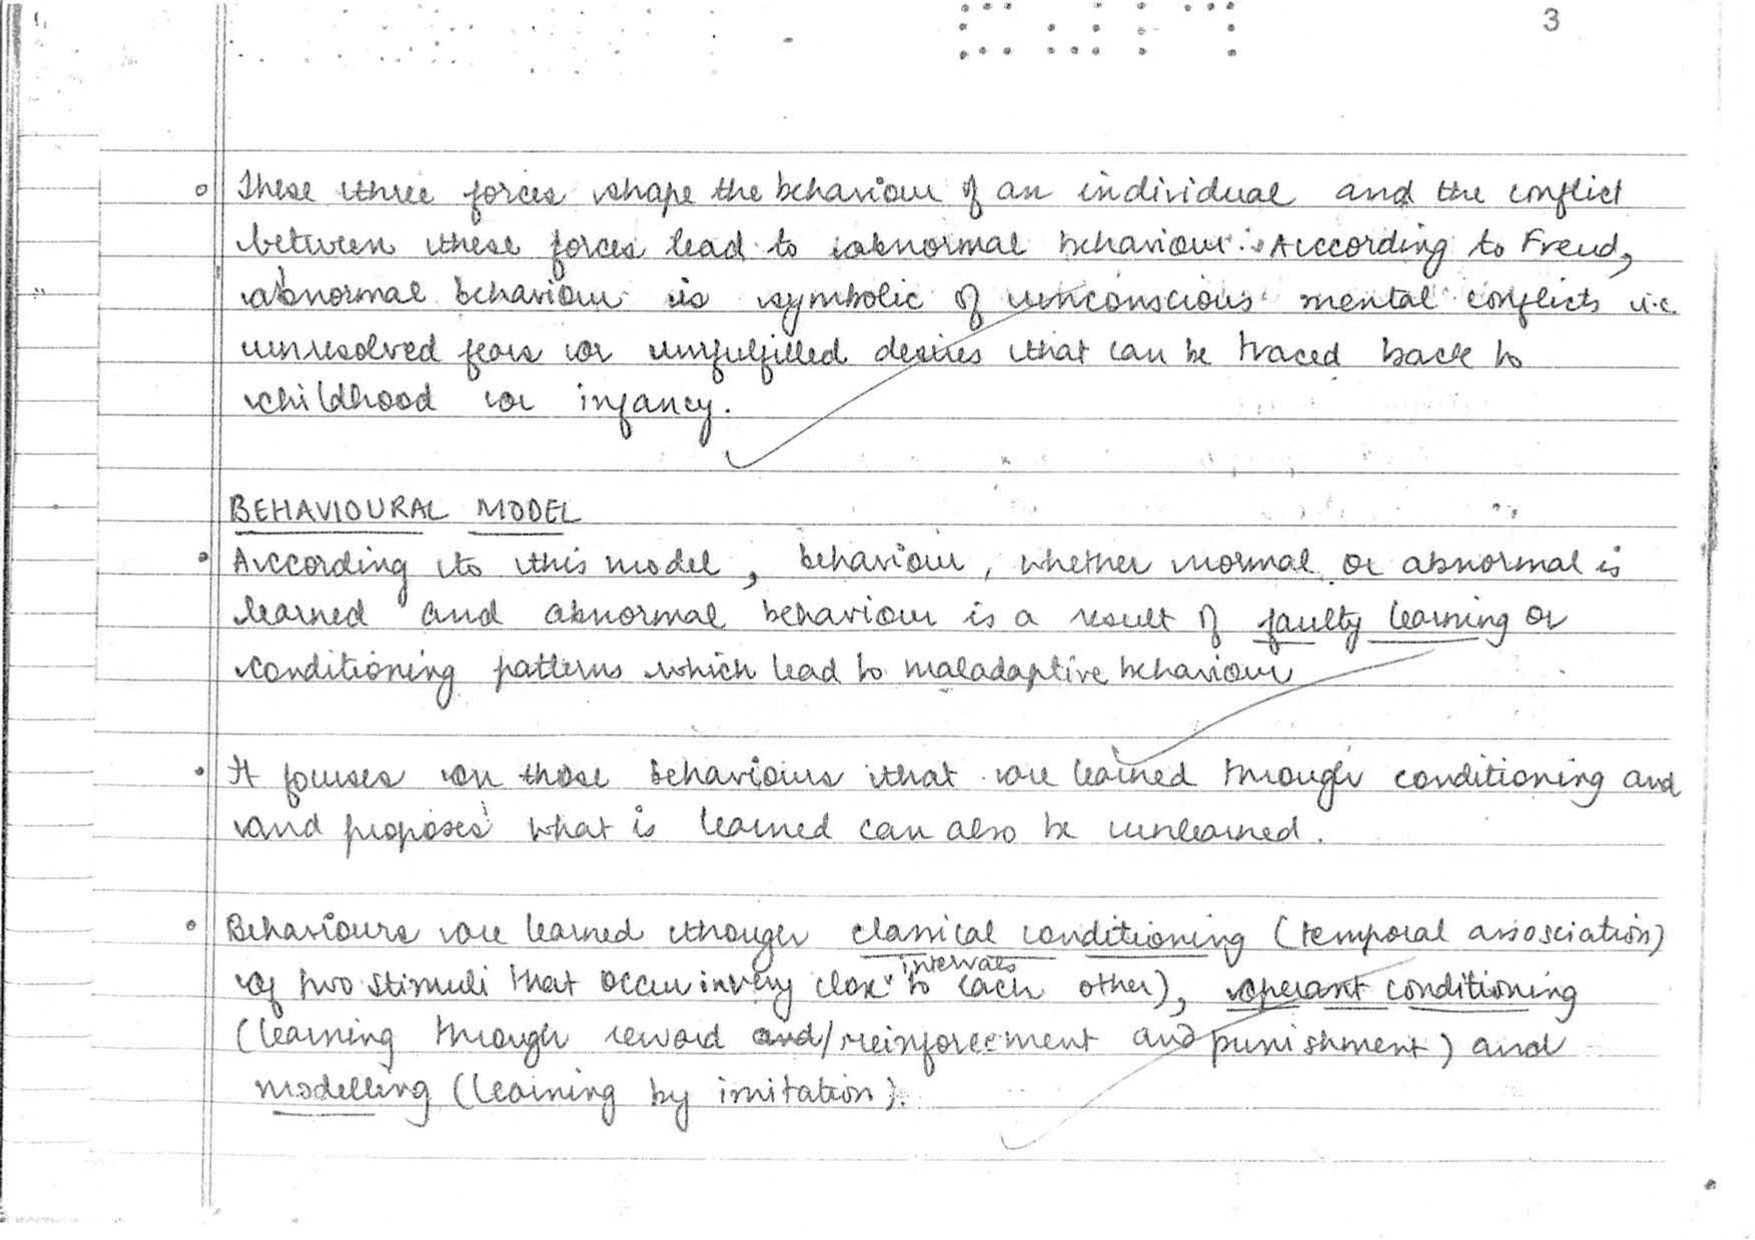 3
These three forces shape the behaviour of an individual and the conflict
between these forces lead to abnormal behaviour. According to Freud,
abnormal behaviour is symbolic of unconscious mental conflicts i.e.
unresolved fears or unfulfilled desires that can be traced back to
childhood or infancy.
BEHAVIOURAL MODEL
According to this model, behaviour, whether normal or abnormal is
learned and abnormal behaviour is a result of faulty learning or
conditioning patterns which lead to maladaptive behaviour
It focuses on those behaviours that are learned through conditioning and
and proposes what is learned can also be unlearned.
Behaviours are learned through classical conditioning (temporal association)
intervals
of two stimuli that occur in very close to each other), operant conditioning
(learning through reward and/reinforcement and punishment) and
modelling (learning by imitation).